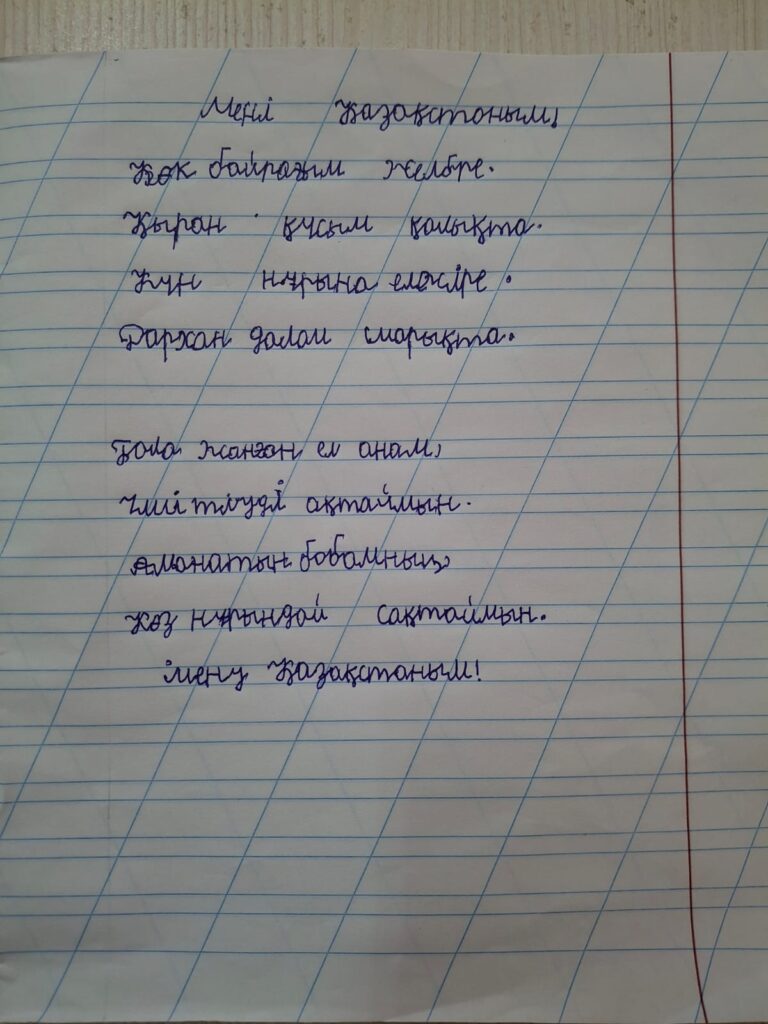 Мені Қазақстаным!
Көк байрағым желбре.
Қыран құсым қалықта.
Күн нұрына елесіре.
Дархан далам смарықта.
Бола жанған ел анам,
Үміттіуді ақтаймын.
Аманатын бабамның,
Көз нұрындай сақтаймын.
імену Қазақстаным!